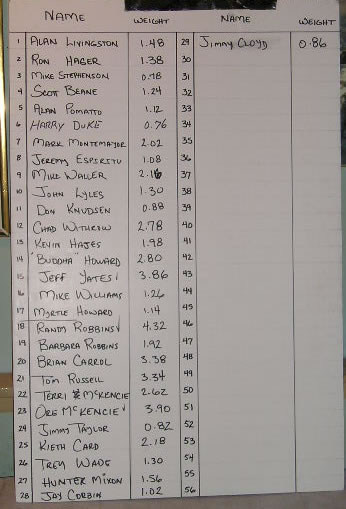 NAME WEIGHT NAME WEIGHT
1 ALAN LIVINGSTON 1.48 29 JIMMY CLOYD 0.86
2 RON HAGER 1.38 30
3 MIKE STEPHENSON 0.78 31
4 SCOTT BEANE 1.24 32
5 ALAN POMATTO 1.12 33
6 HARRY DUKE 0.76 34
7 MARK MONTEMAYOR 2.02 35
8 JEREMY ESPIRITU 1.08 36
9 MIKE WALLER 2.16 37
10 JOHN LYLES 1.30 38
11 DON KNUDSEN 0.88 39
12 CHAD WITHROW 2.78 40
13 KEVIN HAJES 1.98 41
14 "BUDDHA" HOWARD 2.80 42
15 JEFF YATES 3.86 43
16 MIKE WILLIAMS 1.26 44
17 MYRTLE HOWARD 1.14 45
18 RANDY ROBBINS 4.32 46
19 BARBARA ROBBINS 1.92 47
20 BRIAN CARROL 3.38 48
21 TOM RUSSELL 3.34 49
22 TERRI McKENCIE 2.62 50
23 ORE McKENCIE 3.90 51
24 JIMMY TAYLOR 0.82 52
25 KIETH CARD 2.18 53
26 TREY WADE 1.30 54
27 HUNTER MIXON 1.56 55
28 JAY CORBIN 1.02 56